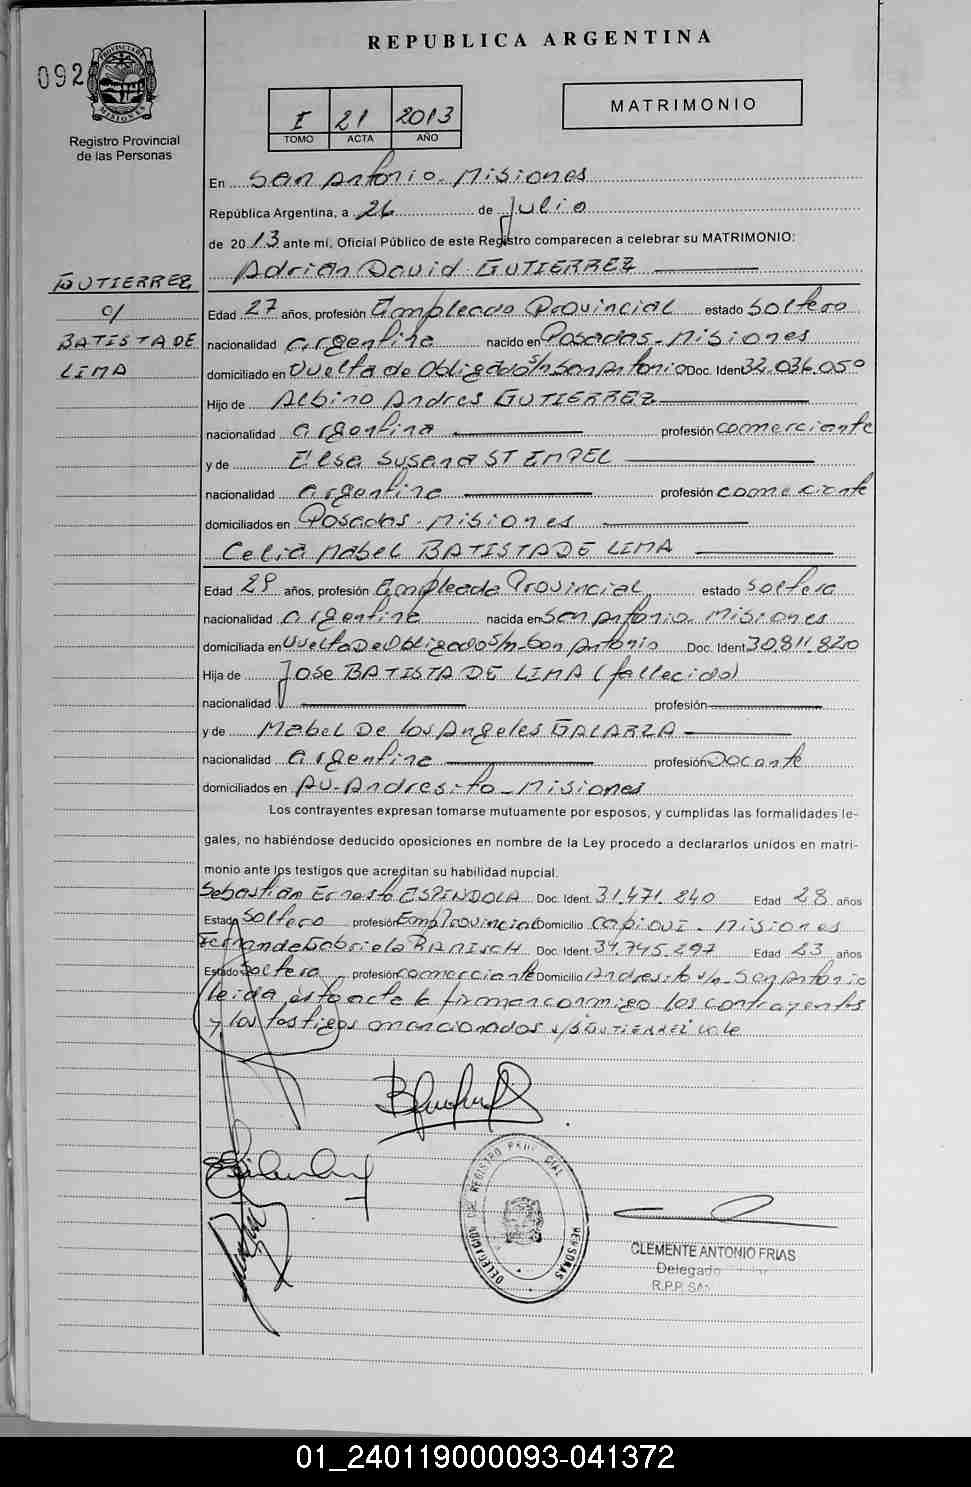 REPUBLICA ARGENTINA
092
PROVINCIA DE
MISIONES
Registro Provincial
de las Personas
I 21 2013
TOMO ACTA AÑO
MATRIMONIO
En San Antonio - Misiones
República Argentina, a 26 de Julio
de 2013 ante mí, Oficial Público de este Registro comparecen a celebrar su MATRIMONIO:
Adrián David GUTIERREZ
GUTIERREZ
c/
BATISTA DE
LIMA
Edad 27 años, profesión Empleado Provincial estado Soltero
nacionalidad argentina nacido en Posadas - Misiones
domiciliado en Vuelta de Obligado s/n San Antonio Doc. Iden 32.036.050
Hijo de Albino Andres GUTIERREZ
nacionalidad argentina profesión comerciante
y de Elsa Susana STEMPEL
nacionalidad argentina profesión comerciante
domiciliados en Posadas - Misiones
Celia Mabel BATISTA DE LIMA
Edad 29 años, profesión Empleada Provincial estado Soltera
nacionalidad argentina nacida en San Antonio - Misiones
domiciliada en Vuelta De Obligado S/n - San Antonio Doc. Ident. 30.811.820
Hija de Jose BATISTA DE LIMA (fallecido)
nacionalidad profesión
y de Mabel De los Angeles GALARZA
nacionalidad argentina profesión Docente
domiciliados en AV - Andresito - Misiones
Los contrayentes expresan tomarse mutuamente por esposos, y cumplidas las formalidades le-
gales, no habiéndose deducido oposiciones en nombre de la Ley procedo a declararlos unidos en matri-
monio ante los testigos que acreditan su habilidad nupcial.
Sebastian Ernesto ESPINDOLA Doc. Ident. 31.471.240 Edad 28 años
Estado Soltero profesión Emp/Provincial Domicilio Capiovi - Misiones
Fernanda Gabriela RANISCH Doc. Ident. 34.745.297 Edad 23 años
Estado Soltera profesión comerciante Domicilio Andresito s/n - San Antonio
leida esta acta la firman conmigo los contrayentes
y los testigos mencionados s/s GUTIERREZ Vale
DELEGACION DEL REGISTRO PROVINCIAL
PERSONAS
CLEMENTE ANTONIO FRIAS
Delegado
R.P.P. SAN
01_240119000093-041372